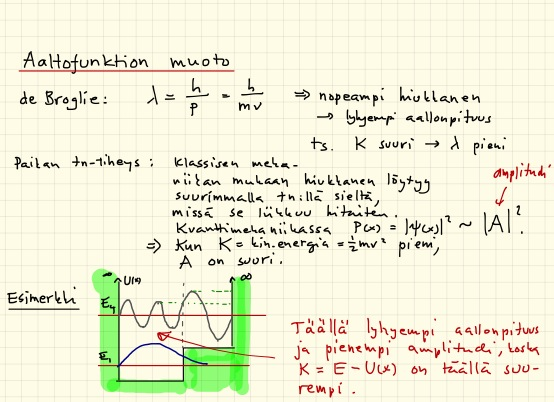 Aaltofunktion muoto
de Broglie: λ = h/p = h/mv ⇒ nopeampi hiukkanen
→ lyhyempi aallonpituus
ts. K suuri → λ pieni
Paikan tn-tiheys: Klassisen meka-
niikan mukaan hiukkanen löytyy
suurimmalla tn:llä sieltä,
missä se liikkuu hitaiten.
amplitudi
Kvanttimekaniikassa P(x) = |ψ(x)|² ~ |A|².
⇒ Kun K = kin.energia = ½mv² pieni,
A on suuri.
Esimerkki
∞ U(x) ∞
E₄
E₁
Täällä lyhyempi aallonpituus
ja pienempi amplitudi, koska
K = E - U(x) on täällä suu-
rempi.